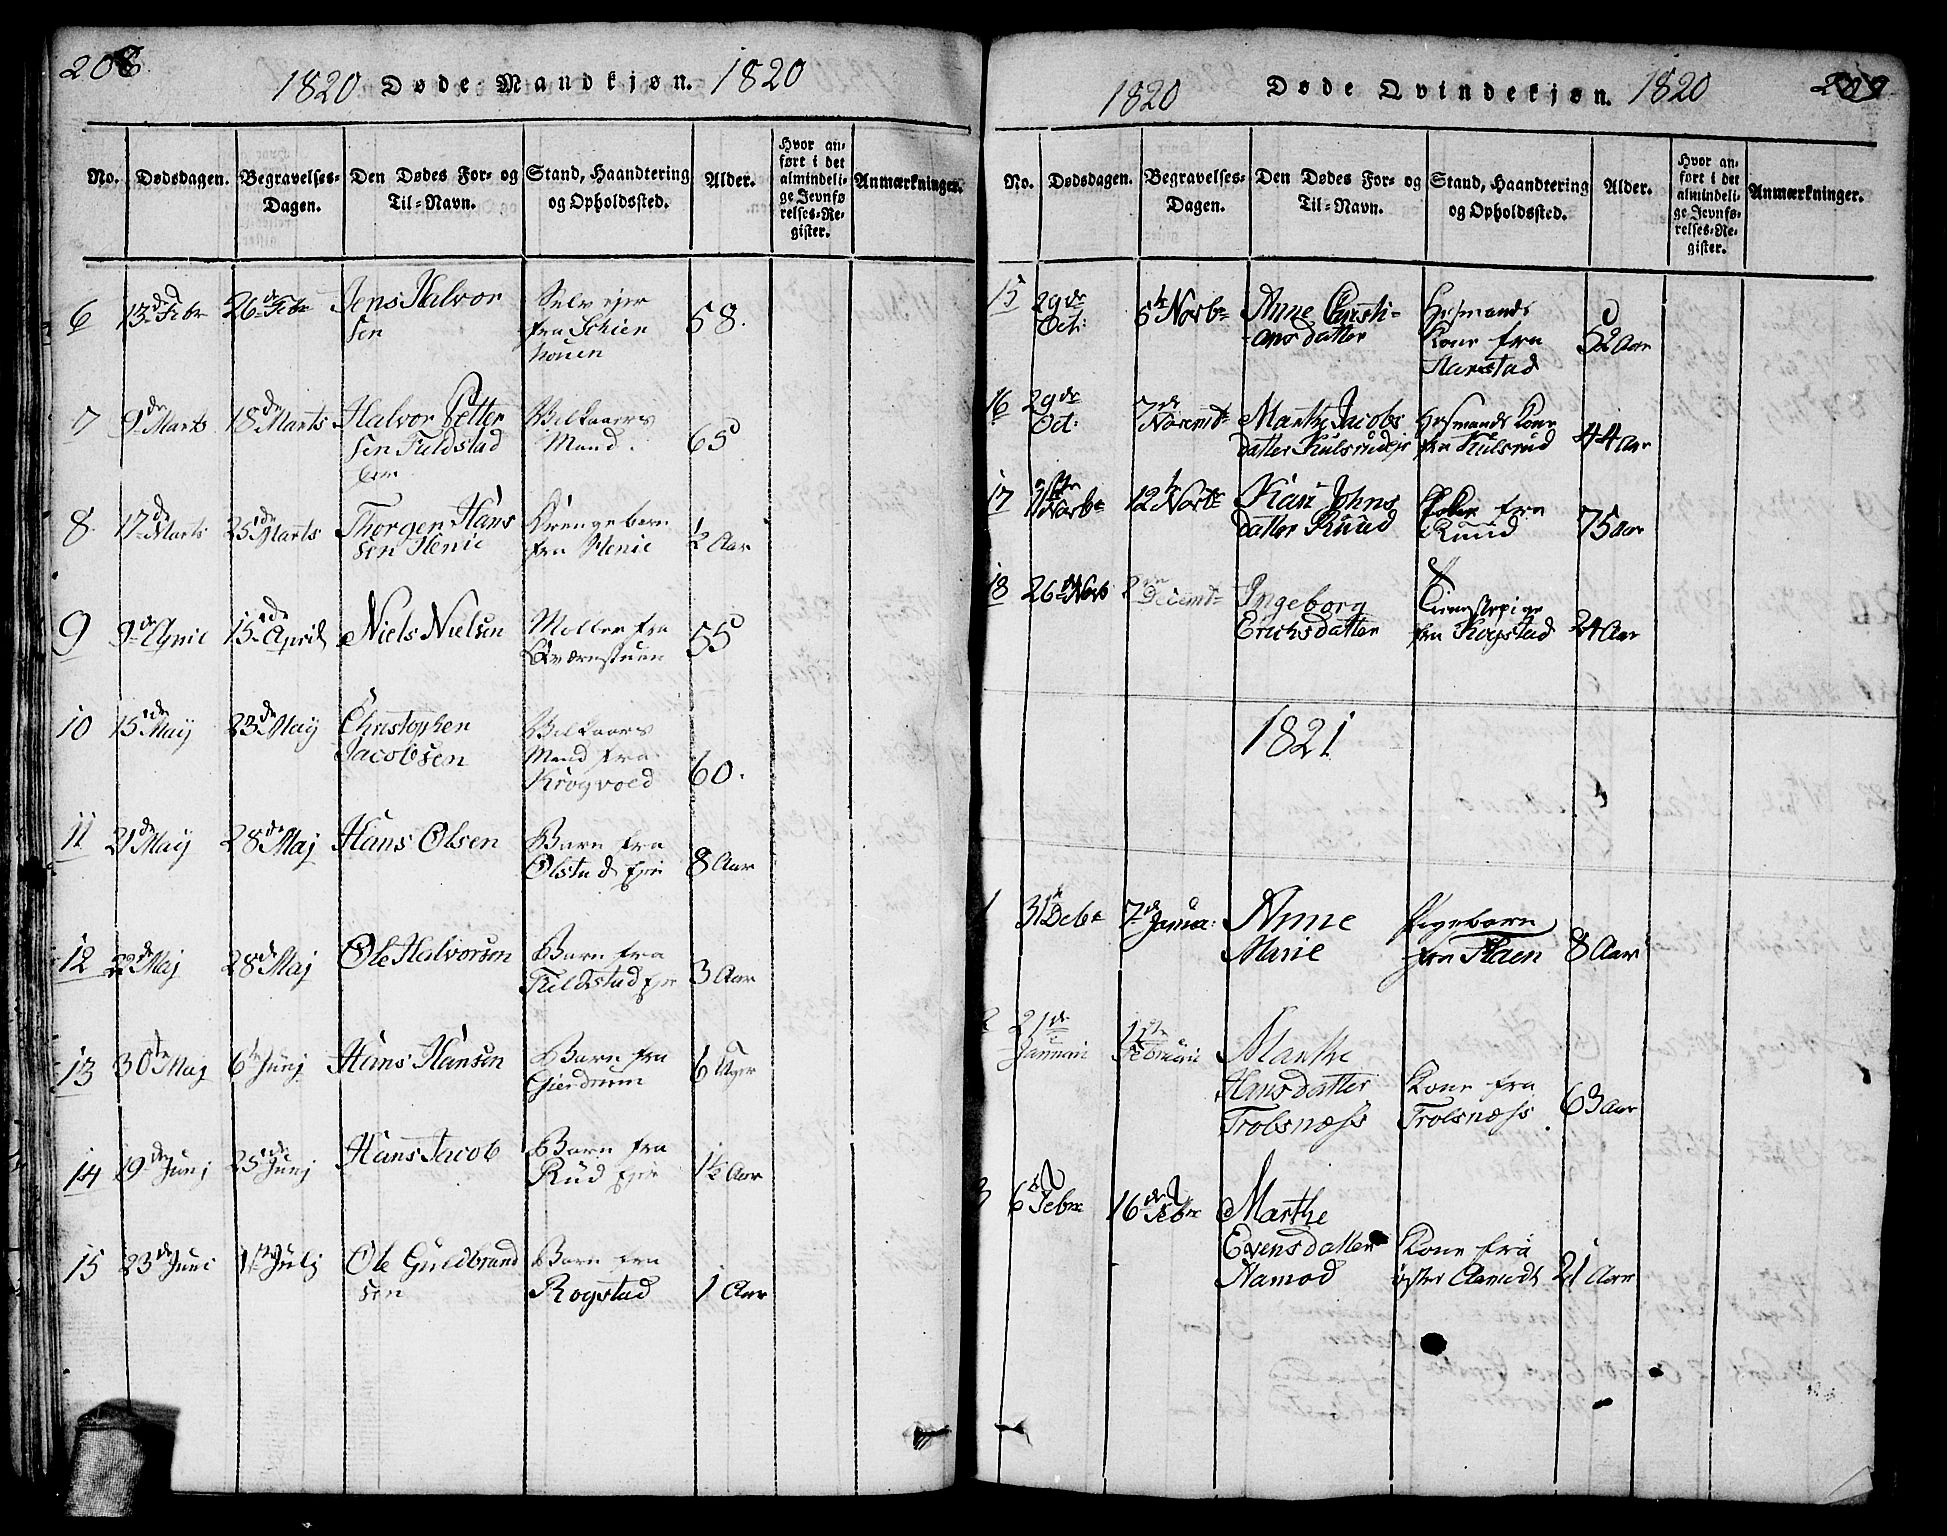 208
1820 Døde Mandkjøn. 1820
No. Dødsdagen. Begravelses-Dagen. Den Dødes For- og Til-Navn. Stand, Haandtering og Opholdssted. Alder. Hvor anført i det almindelige Jevnførelses-Register. Anmærkninger.
6 13de Febr 26de Febr Jens Halvor
sen
Selv ejer
fra Schien
houen
58.
7 9de Marts 18de Marts Halvor Petter
sen Fieldstad
Ejer
Vilkaars
Mand.
65
8. 17de Marts 25de Marts Thorgen Hans
sen Henie
Drengebarn
fra Henie
1/2 Aar
9 9de April 15de April Niels Nielsen
Møller fra
Qværnstuen
55
10 15de Maij 23de Maij Christopher
Jacobsen
Vilkaars
Mand fra
Krogvold
60.
11 21de Maij 28de Maj Hans Olsen
Barn fra
Olstad Ejer
8 Aar
12 22de Maj 28de Maj Ole Halvorsen
Barn fra
Fieldstad Ejer
3 Aar
13 30te Maj 6te Junj Hans Hansen
Barn fra
Gierdrum
6 Uger
14 19de Junj 25de Junj Hans Jacob
Barn fra
Rud Ejer
1 1/2 Aar
15 23de Juni 1ste Julj Ole Guldbrand
sen
Barn fra
Rogstad
1 Aar
209
1820 Døde Qvindekjøn. 1820
No. Dødsdagen. Begravelses-Dagen. Den Dødes For- og Til-Navn. Stand, Haandtering og Opholdssted. Alder. Hvor anført i det almindelige Jevnførelses-Register. Anmærkninger.
15 29de
Oct:
5te Novbr Anne Christi-
ansdatter
Husmands
Kone fra
Harstad
52 Aar
16 29de
Oct:
7de
Novembr
Marthe Jacobs
datter Kulsrudejr
Husmands Kone
fra Kulsrud
44 Aar
17
Novbr
12te Novbr Kari Johns
datter Ruud
fra
Ruud
75 Aar
18 26de Novb 2den
Decembr
Ingeborg
Erichsdatter
Tienestepige
fra Rogstad
24 Aar
1821
1 31te Debr 7de Janua: Anne
Marie
Pigebarn
fra Haen
8 Aar
2 21de
Januari
11te
Februari
Marthe
Hansdatter
Trolsnæss
Kone fra
Trolsnæss.
63 Aar
3 6te Febr 16de Febr Marthe
Evensdatter
Aamod
Kone fra
øster Aamodt
21 Aar